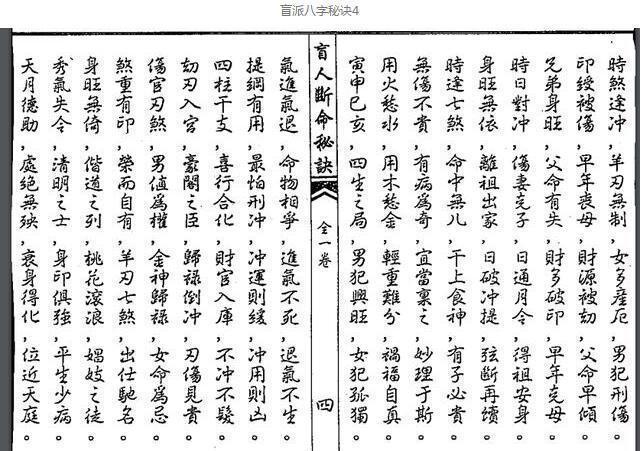 盲派八字秘诀4
時煞逢冲，羊刃無制，女多産厄，男犯刑傷。
印綬被傷，早年丧母，財源被劫，父命早傾。
兄弟身旺，父命有失，財多破印，早年克母。
時日對冲，傷妻克子，日通月令，得祖安身。
身旺無依，離祖出家，日破冲提，弦斷再續。
時逢七煞，命中無儿，干上食神，有子必貴。
無傷不貴，有病爲奇，宜當裏之，妙理于斯。
用火愁水，用木愁金，輕重難分，禍福自真。
寅申巳亥，四生之局，男犯興旺，女犯孤獨。
盲人斷命秘訣 全一卷 四
氣進氣退，命物相爭，進氣不死，退氣不生。
提綱有用，最怕刑冲，冲運則緩，冲用則凶。
四柱干支，喜行合化，財官入庫，不冲不發。
劫刃入宫，豪閣之臣，歸禄倒冲，刃傷見貴。
傷官刃煞，男值爲權，金神歸禄，女命爲忌。
煞重有印，榮而自有，羊刃七煞，出仕馳名。
身旺無倚，偕道之列，桃花滚浪，娼妓之徒。
秀氣失令，清明之士，身印俱强，平生少病。
天月德助，處絕無殃，衰身得化，位近天庭。